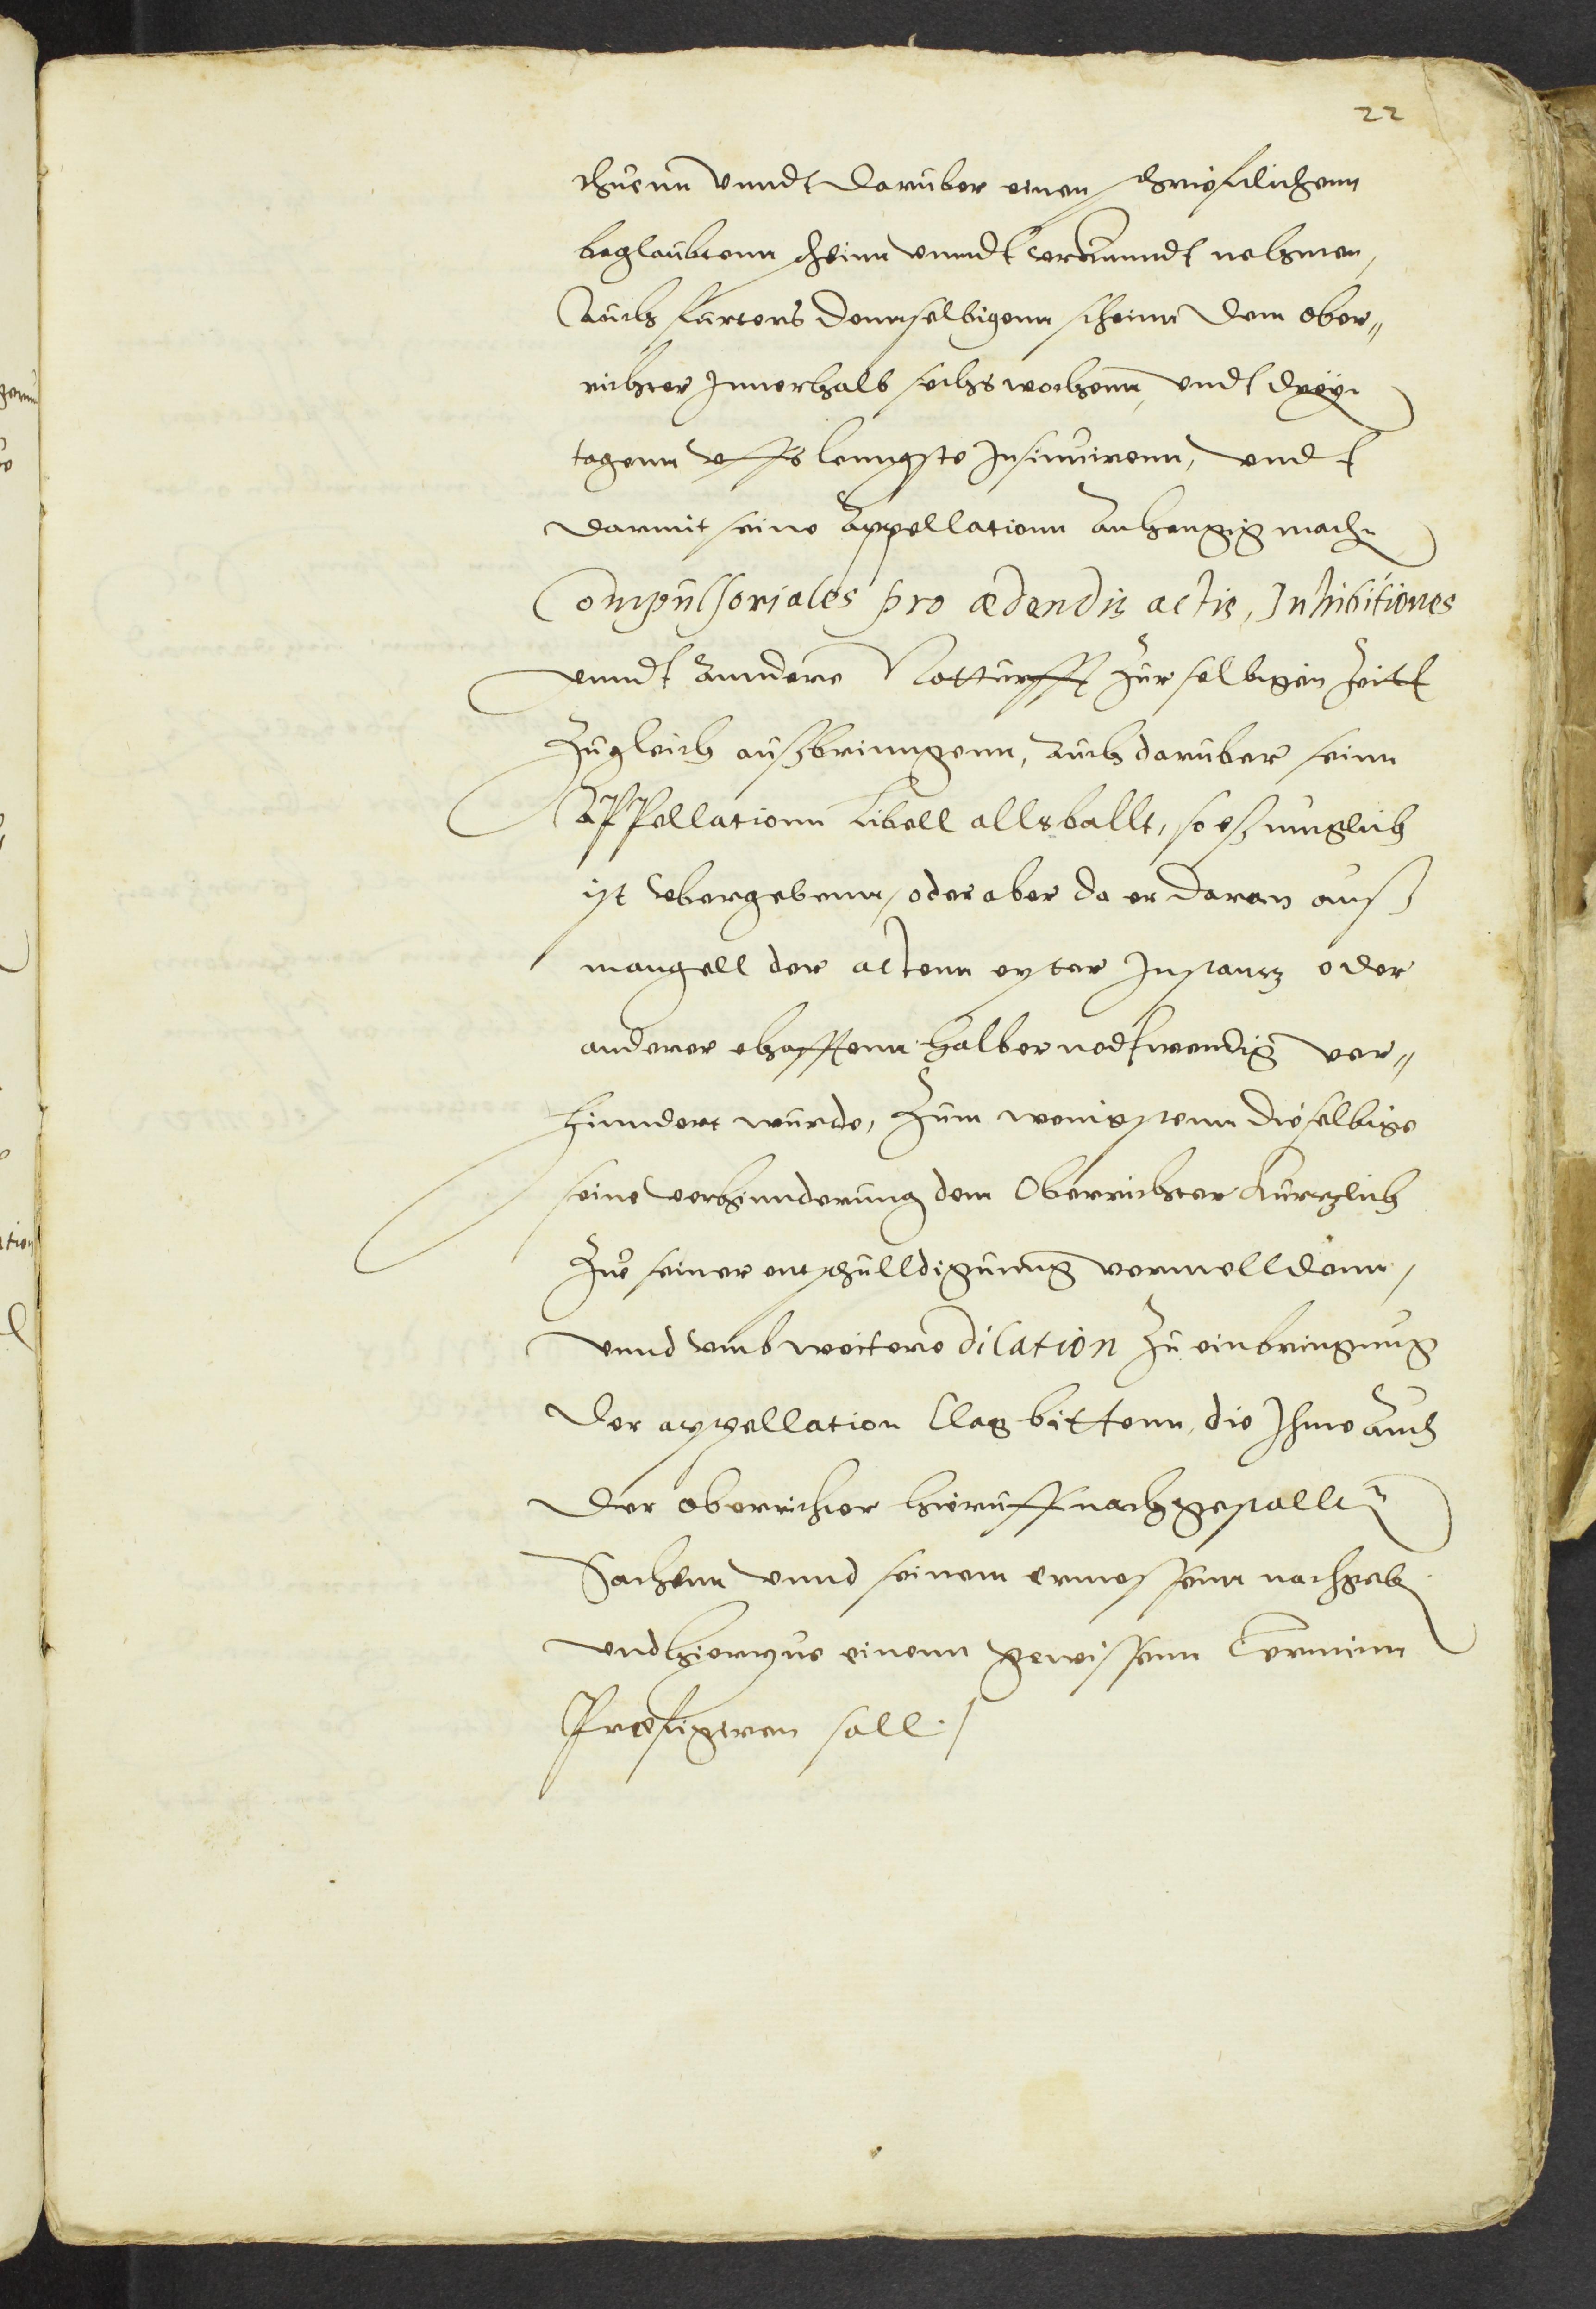 22
thuenn vnndt daruber einen schriefftlichenn
beglaubtenn schein vnndt verkunndt nehmen,
Auch furters dennselbigenn scheinn dem ober„
richter Innerhalb sechs wochenn, vndt drey
tagenn vffs lenngste Insinuirenn, vndt
darmit seine Appellationn Anhengig mach
Compulsoriales pro ædendis actis, Inhibitiones
vnndt Anndere Notturfft Zur selbigen Zeitt
Zugleich außbrinngenn, Auch daruber seinn
Appellationn Libell allsballt, so eß muglich
ist vbergebenn, oder aber da er daran auß
mangell der actenn erster Instantz oder
anderer ehafftenn halber nodtwendig ver„
hinndert wurde, Zum wenigstenn dieselbige
seine verhinnderung dem Oberrichter Kurtzlich
Zue seiner entschulldigunng vermelldenn,
vnnd vmb weitere dilation Zu einbringung
der appellation Clag bittenn, die Ihme Auch
der oberrichter hieruff nach gestallt
Sachenn vnnd seinem ermessenn nachgeb
vnd hierzue einenn gewissenn Terminn
Præfigeren soll.
genn
ation